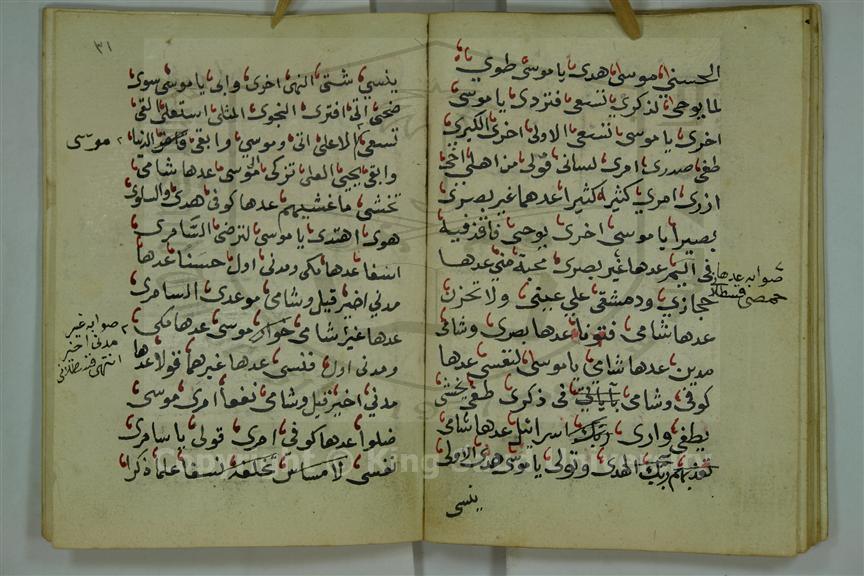 الحسنى موسى هدى يا موسى طوى
لما يوحى لذكرى تسعى فتردى يا موسى
اخرى يا موسى تسعى الاولى اخرى الكبرى
طغى صدرى امرى لسانى قولى من اهلى اخى
ازرى امرى كثيرا كثيرا عدهما غير بصرى
بصيرا يا موسى اخرى يوحى فاقذفيه
فى اليم عدها غير بصرى محبة منى عدها
حجازى ودمشقى على عينى ولا تحزن
عدها شامى فتونا عدها بصرى وشامى
مدين عدها شامى يا موسى لنفسى عدها
كوفى وشامى بآياتى فى ذكرى طغى يخشى
يطغى وارى ربك اسرائيل عدها شامى
تعذبهم ربك الهدى وتولى يا موسى هدى الاولى
ينسى
صوابه عدها
حمصى قسطلا
٣١
ينسى شتى النهى اخرى وابى يا موسى سوى
ضحى اتى افترى النجوى المثلى استعلى القى
تسعى الاعلى اتى وموسى وابقى الدنيا
موسى
وابقى يحيى العلى تزكى موسى عدها شامى
تخشى ما غشيهم عدها كوفى هدى والسلوى
هوى اهتدى يا موسى لترضى السامرى
اسفا عدها مكى ومدنى اول حسنا عدها
مدنى اخير قيل وشامى موعدى السامرى
عدها غير شامى خوار موسى عدها مكى
ومدنى اول فنسى عدها غيرهما قولا عدها
مدنى اخير قيل وشامى نفعا امرى موسى
ضلوا عدها كوفى امرى قولى يا سامرى
نفسى لا مساس تخلفه نسفا علما ذكرا
صوابه غير
مدنى اخير
انتهى قسطلانى
Copyright © King Saud University